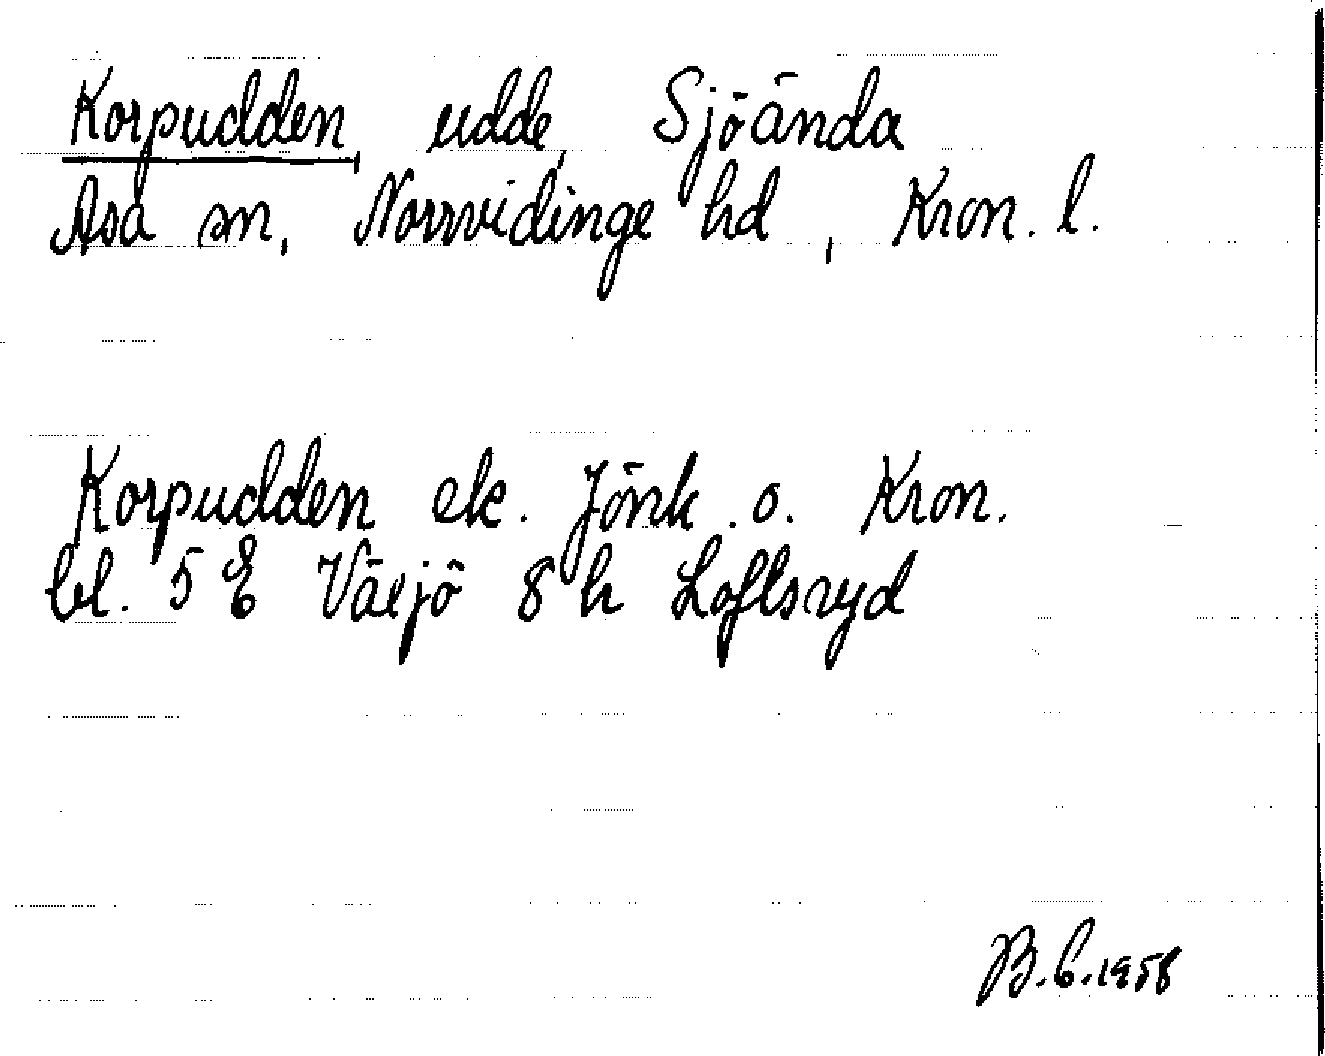 Korpudden, udde, Sjöända
Asa sn, Norrvidinge hd, Kron. l.
Korpudden ek. Jönk. o. Kron.
bl. 5 E Växjö 8 h Loftsryd
B.E.1958